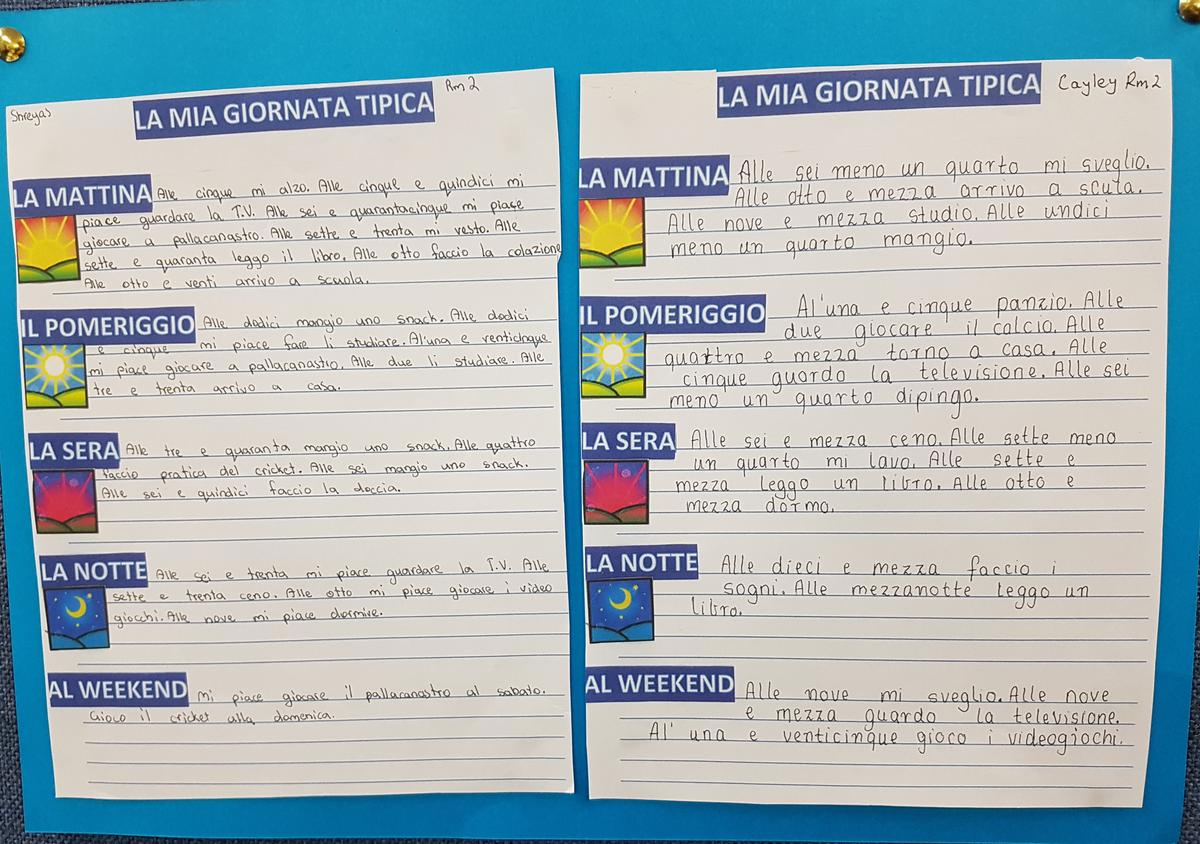 Shreyas
LA MIA GIORNATA TIPICA
Rm 2
LA MATTINA Alle cinque mi alzo. Alle cinque e quindici mi
piace guardare la T.V. Alle sei e quarantacinque mi piace
giocare a pallacanastro. Alle sette e trenta mi vesto. Alle
sette e quaranta leggo il libro. Alle otto faccio la colazione
Alle otto e venti arrivo a scuola.
IL POMERIGGIO Alle dodici mangio uno snack. Alle dodici
e cinque mi piace fare li studiare. Al'una e venticinque
mi piace giocare a pallacanastro. Alle due li studiare. Alle
tre e trenta arrivo a casa.
LA SERA Alle tre e quaranta mangio uno snack. Alle quattro
faccio pratica del cricket. Alle sei mangio uno snack.
Alle sei e quindici faccio la doccia.
LA NOTTE Alle sei e trenta mi piace guardare la T.V. Alle
sette e trenta ceno. Alle otto mi piace giocare i video
giochi. Alle nove mi piace dormire.
AL WEEKEND Mi piace giocare il pallacanastro al sabato.
Gioco il cricket alla domenica.
LA MIA GIORNATA TIPICA
Cayley Rm 2
LA MATTINA Alle sei meno un quarto mi sveglio.
Alle otto e mezza arrivo a scula.
Alle nove e mezza studio. Alle undici
meno un quarto mangio.
IL POMERIGGIO Al'una e cinque panzio. Alle
due giocare il calcio. Alle
quattro e mezza torno a casa. Alle
cinque guordo la televisione. Alle sei
meno un quarto dipingo.
LA SERA Alle sei e mezza ceno. Alle sette meno
un quarto mi lavo. Alle sette e
mezza leggo un libro. Alle otto e
mezza dormo.
LA NOTTE Alle dieci e mezza faccio i
sogni. Alle mezzanotte leggo un
libro.
AL WEEKEND Alle nove mi sveglio. Alle nove
e mezza guardo la televisione.
Al' una e venticinque gioco i videogiochi.